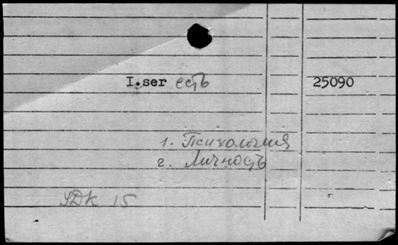 I.ser есть 25090
1. Психология
2. Личность
УДК 15